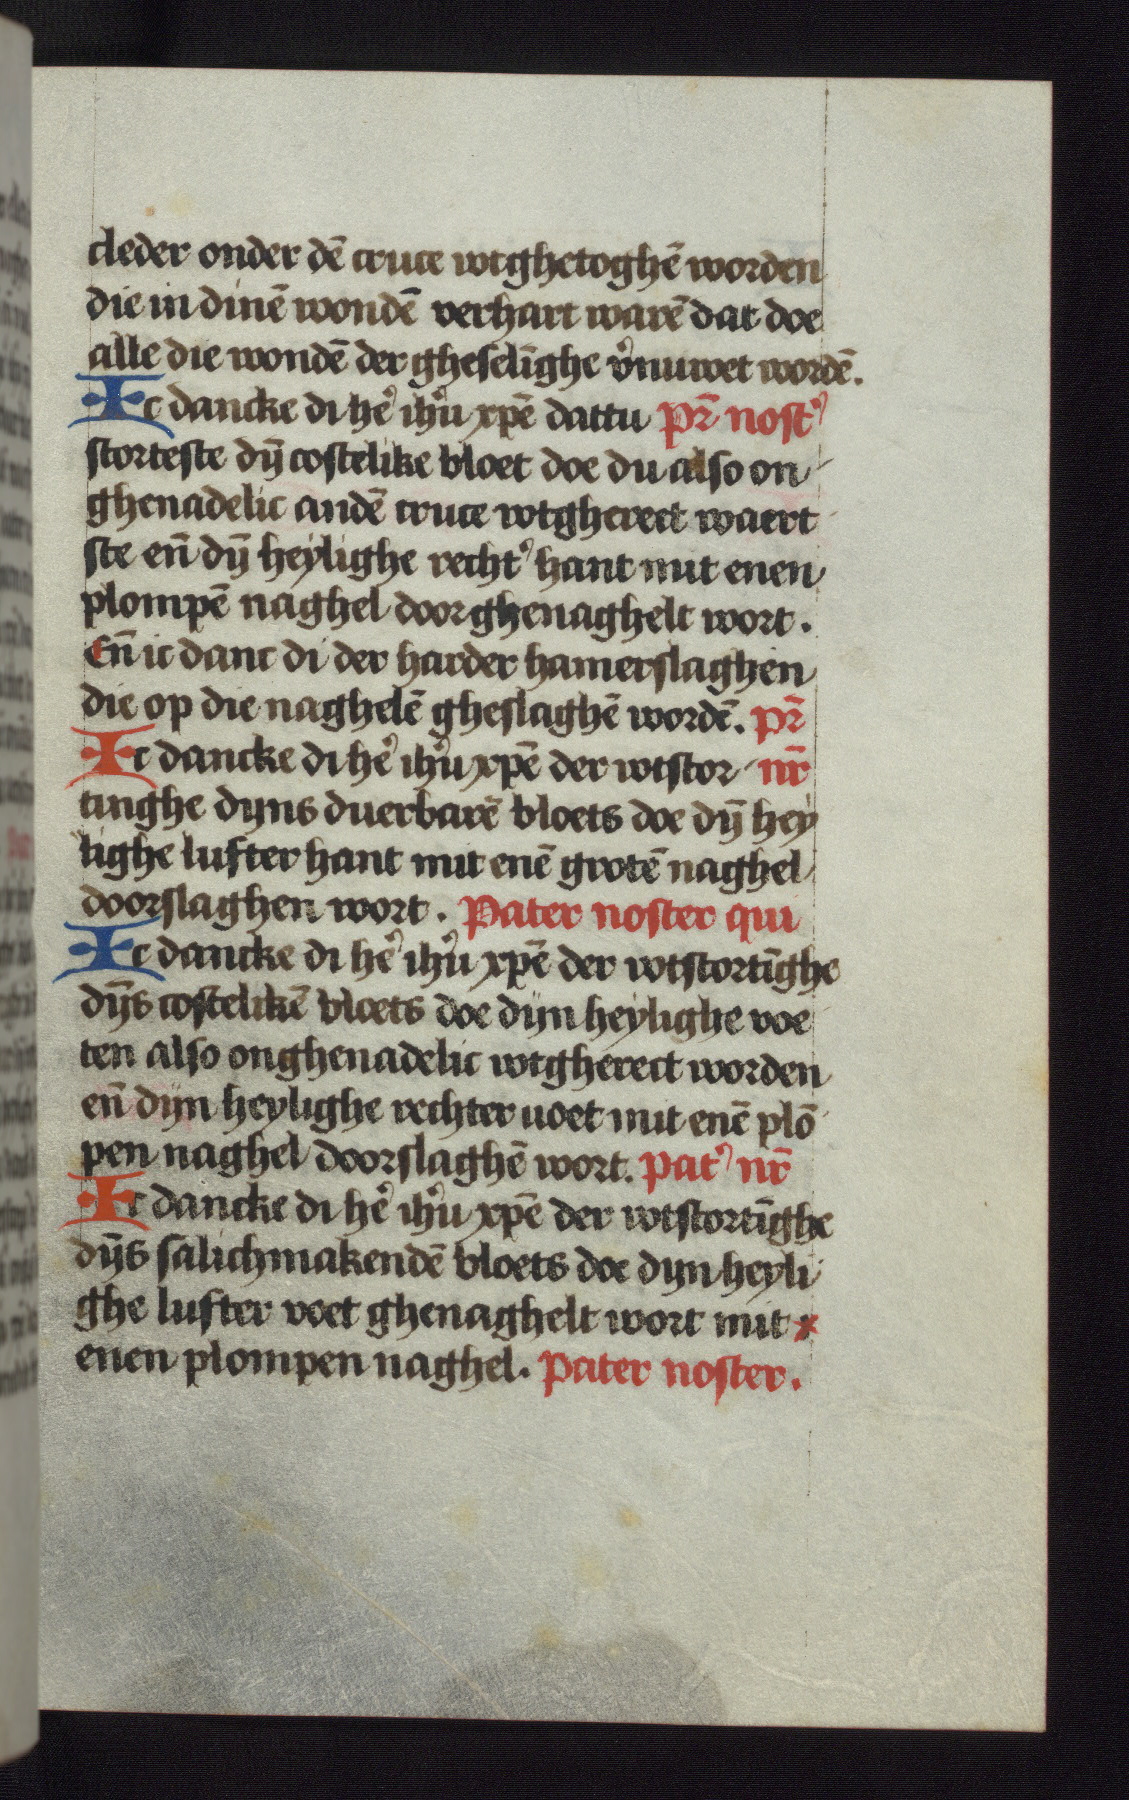 cleder onder dē cruce wtghetoghē worden
die in dinē wondē verhart warē dat doe
alle die wondē der gheselīghe v᾽nuwet wordē.
Ic dancke di he᾽ ihū xpē dattu pr̄ nost᾽
storteste dȳ costelike bloet doe du also on
ghenadelic andē cruce wtgherect waert
ste en̄ dȳ heylighe recht᾽ hant mit enen
plompē naghel doorghenaghelt wort.
En̄ ic danc di der harder hamerslaghen
die op die naghelē gheslaghē wordē. pr̄
Ic dancke di he᾽ ihū xpē der wtstor nr̄
tinghe dyns duerbarē bloets doe dȳ hey
lighe lufter hant mit enē grotē naghel
doorslaghen wort. Pater noster qui
Ic dancke di he᾽ ihū xpē der wtstortīghe
dȳs costelikē bloets doe dijn heylighe voe
ten also onghenadelic wtgherect worden
en̄ dijn heylighe rechter uoet mit enē plō
pen naghel doorslaghē wort. pat᾽ nr̄
Ic dancke di he᾽ ihū xpē der wtstortīghe
dȳs salichmakendē bloets doe dyn heyli
ghe lufter voet ghenaghelt wort mit
enen plompen naghel. Pater noster.